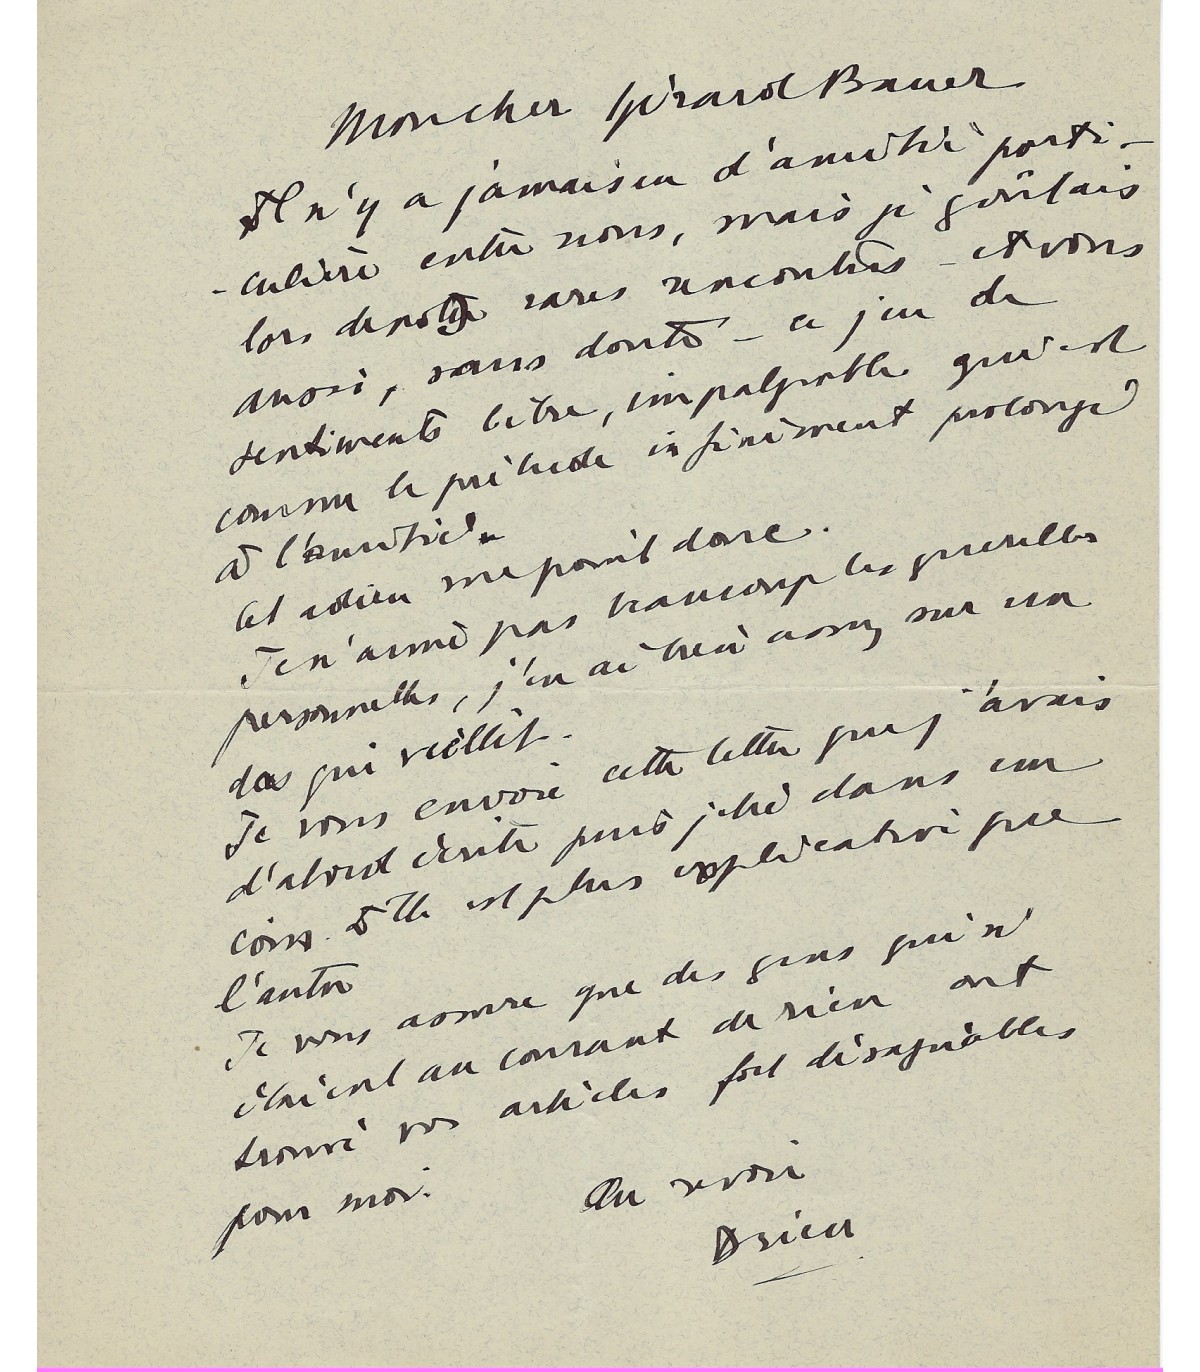 Mon cher Gérard Bauer
Il n'y a jamais eu d'amitié parti-
-culière entre nous, mais je goûtais
lors de notre rares rencontres - et vous
aussi, sans doute - ce jeu de
sentiments libre, impalpable qui est
comme le prélude infiniment prolongé
à l'amitié.
Cet adieu me point donc.
Je n'aime pas beaucoup les querelles
personnelles, j'en ai bien assez sur un
dos qui vieillit.
Je vous envoie cette lettre que j'avais
d'abord écrite puis jeté dans un
coin. Elle est plus explicative que
l'autre
Je vous assure que des gens qui n'
étaient au courant de rien ont
trouvé vos articles fort désagréables
pour moi.
Au revoir
Drieu